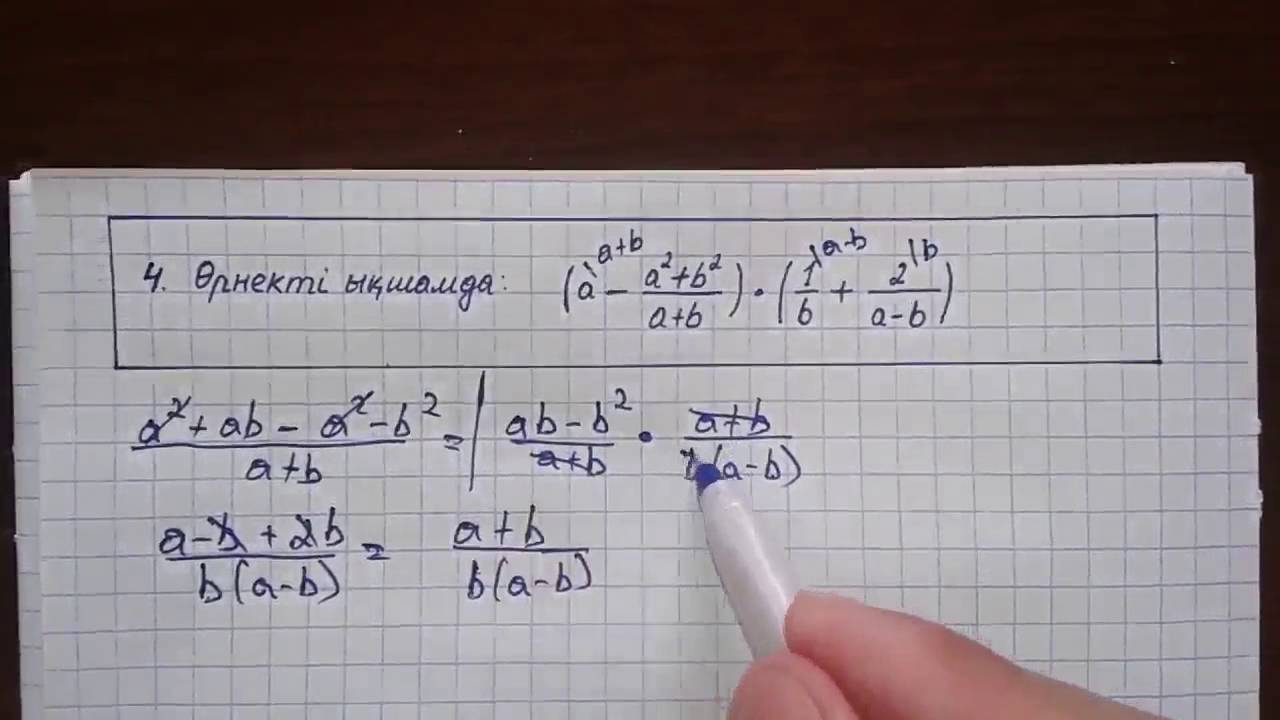 4. Өрнекті ықшамда: (a^{\a+b} - \frac{a²+b²}{a+b}) · (\frac{1}{b}^{\a-b} + \frac{2}{a-b}^{\b})
\frac{a²+ab-a²-b²}{a+b} = | \frac{ab-b²}{a+b} · \frac{a+b}{b(a-b)}
\frac{a-b+2b}{b(a-b)} = \frac{a+b}{b(a-b)}